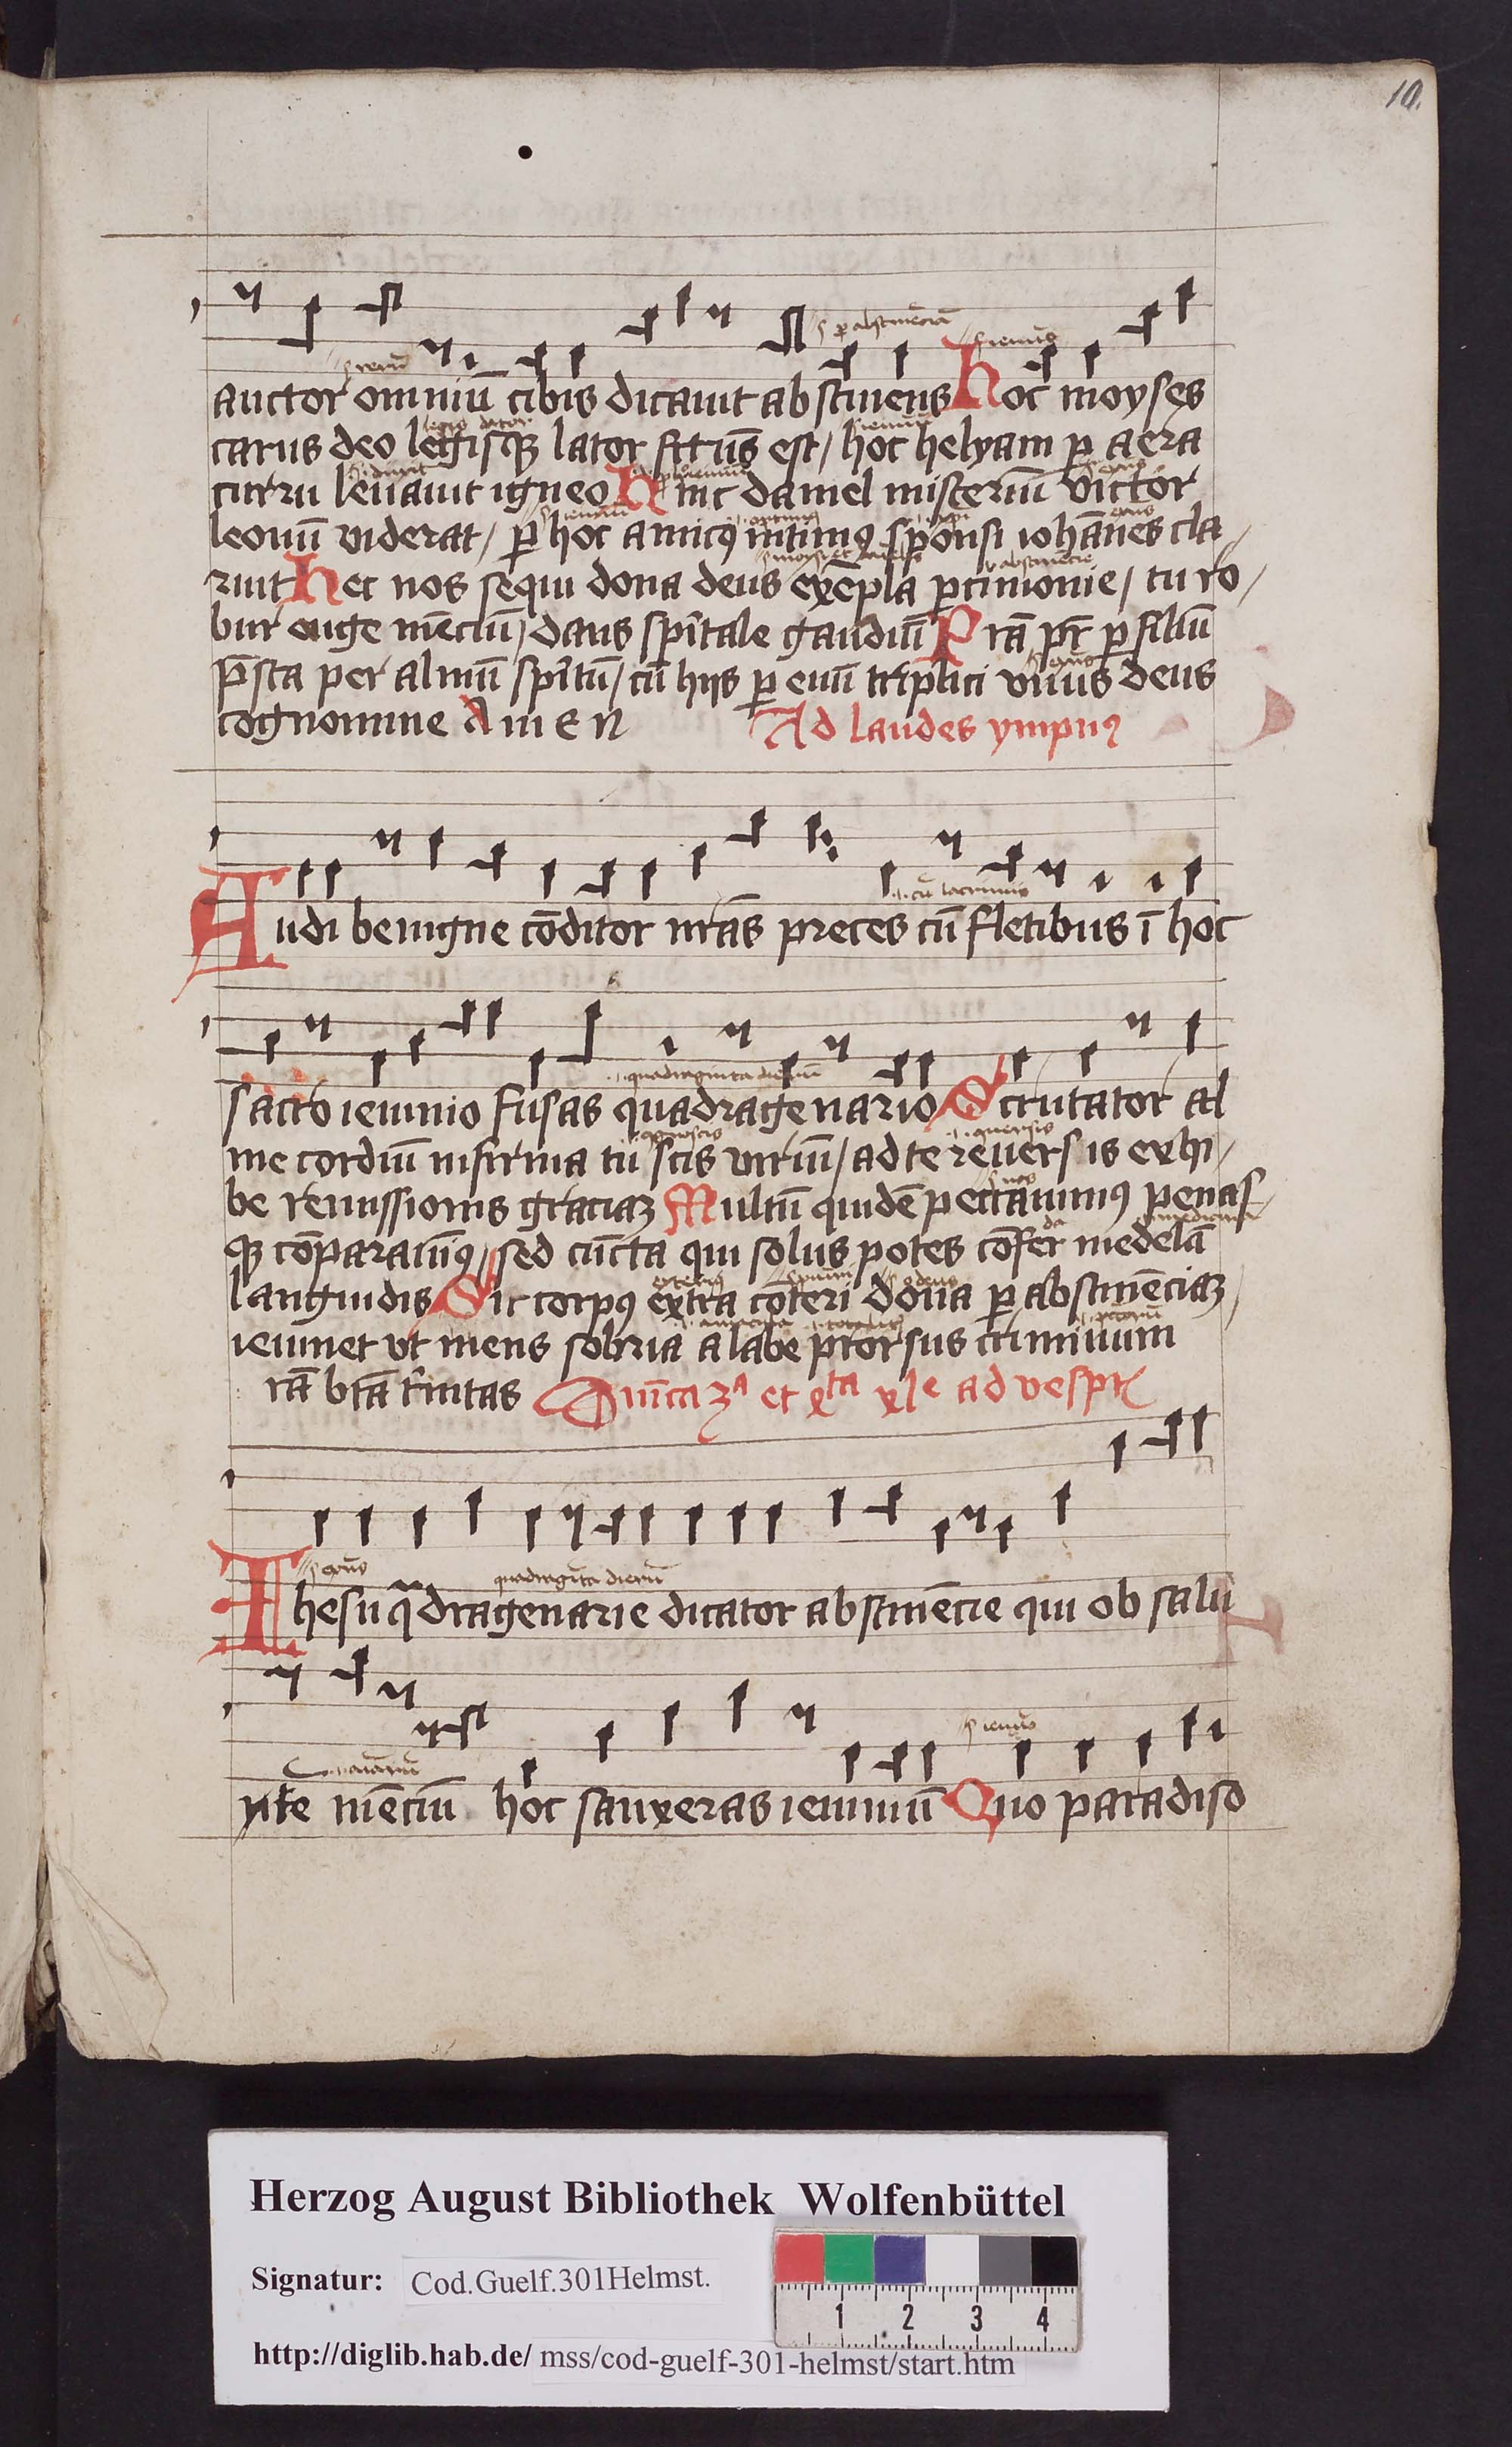 10.
auctor omniū cibis dicauit abstinens Hoc moyses
carus deo legisqꝫ lator fctūs est / hoc helyam ꝑ aera
curru leuauit igneo Hinc daniel misteriū victor
leonū viderat / ꝑ hoc amicꝯ intimꝯ sponsi iohānes cla /
ruit Hec nos sequi dona deus exēpla ꝑcimonie / tu ro /
bur auge mēciū / dans spīrtale gaudiū Prā pr̄ ꝑ filiū
p̄sta per almū spīrtū / cū hijs ꝑ euū triplici vnus deus
cognomine Amen Ad laudes ympnꝯ
cū lacrimis
Audi benigne cōditor nrās preces cū fletibus ī hoc
quadraginta dierū
sacro ieiunio fusas quadragenario Scrutator al
me cordiū infirma tu scis viriū / ad te reuersis exhi /
be remissionis graciaꝫ Multū quidē peccauimꝯ penas /
qꝫ cōparauimꝯ / sed cūcta qui solus potes cōfer medelā
languidis Sic corpꝯ extra cōteri dona ꝑ abstinēciaꝫ /
ieiunet vt mens sobria a labe prorsus criminum
rā btā trinitas Dūica 3ᵃ et 4ta xle ad vespr̄
quadragīta dierū
Ihesu qᵃdragenarie dicator abstinēcie qui ob salu
aīarū
tē mēciū hoc sanxeras ieiuniū Quo paradiso
Herzog August Bibliothek Wolfenbüttel
Signatur: Cod.Guelf.301Helmst.
1 2 3 4
http://diglib.hab.de/ mss/cod-guelf-301-helmst/start.htm